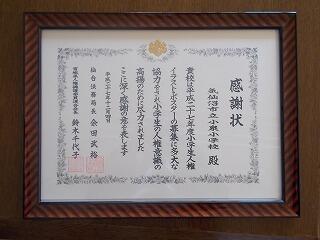 感謝状
気仙沼市立小泉小学校 殿
貴校は平成二十七年度小学生人権
イラストポスターの募集に多大な
協力をされ小学生の人権意識の
高揚のために尽力されました
ここに深く感謝の意を表します
平成二十七年十二月四日
仙台法務局長 余田武裕
鈴木千代子